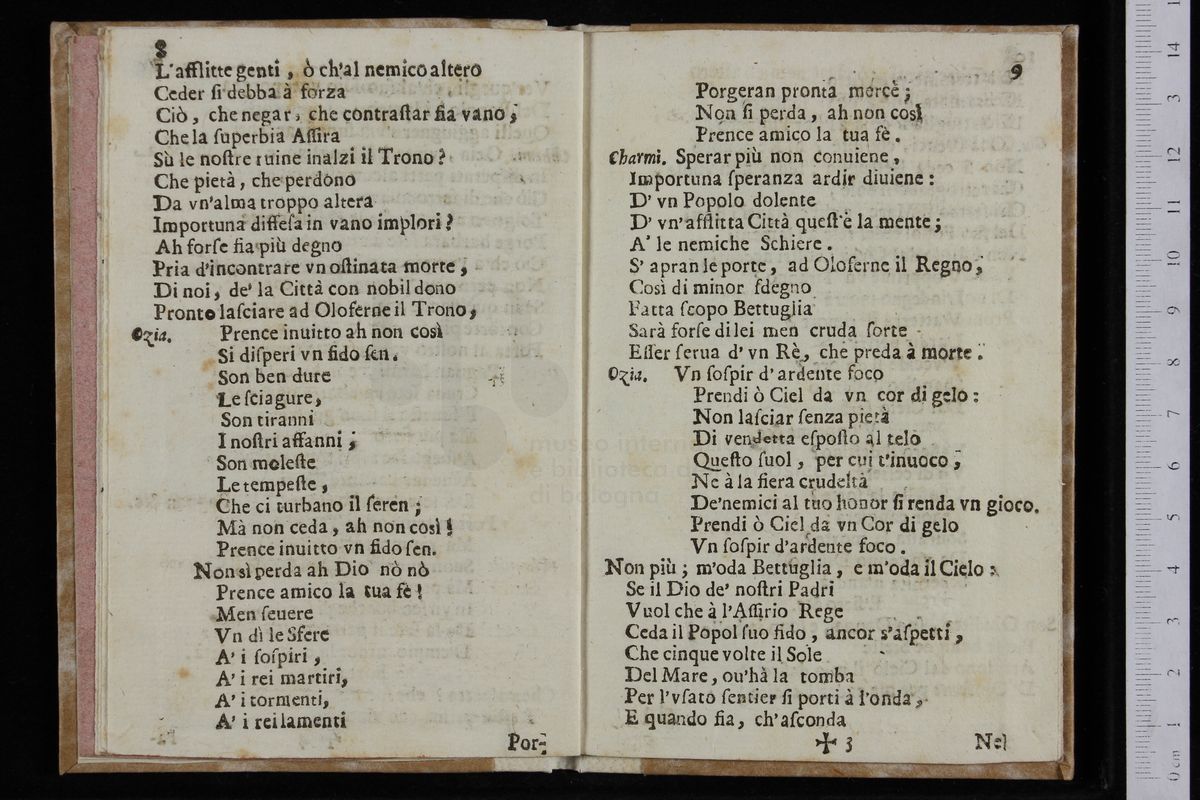 8
L'afflitte genti, ò ch'al nemico altero
Ceder ſi debba à forza
Ciò, che negar, che contraſtar ſia vano;
Che la ſuperbia Aſſira
Sù le noſtre ruine inalzi il Trono?
Che pietà, che perdono
Da vn'alma troppo altera
Importuna diffeſa in vano implori?
Ah forſe ſia più degno
Pria d'incontrare vn oſtinata morte,
Di noi, de' la Città con nobil dono
Pronto laſciare ad Oloferne il Trono,
Ozia. Prence inuitto ah non così
Si diſperi vn fido ſen.
Son ben dure
Le ſciagure,
Son tiranni
I noſtri affanni;
Son moleſte
Le tempeſte,
Che ci turbano il ſeren;
Mà non ceda, ah non così!
Prence inuitto vn fido ſen.
Non sì perda ah Dio nò nò
Prence amico la tua fè!
Men ſeuere
Vn dì le Sfere
A' i ſoſpiri,
A' i rei martiri,
A' i tormenti,
A' i rei lamenti
Por-
9
Porgeran pronta mercè;
Non ſi perda, ah non così
Prence amico la tua fè.
Charmi. Sperar più non conuiene,
Importuna ſperanza ardir diuiene:
D' vn Popolo dolente
D' vn'afflitta Città queſt'è la mente;
A' le nemiche Schiere.
S' apran le porte, ad Oloferne il Regno;
Così di minor ſdegno
Fatta ſcopo Bettuglia
Sarà forſe di lei men cruda ſorte
Eſſer ſerua d' vn Rè, che preda à morte.
Ozia. Vn ſoſpir d'ardente foco
Prendi ò Ciel da vn cor di gelo:
Non laſciar ſenza pietà
Di vendetta eſpoſto al telo
Queſto ſuol, per cui t'inuoco;
Ne à la fiera crudeltà
De'nemici al tuo honor ſi renda vn gioco.
Prendi ò Ciel da vn Cor di gelo
Vn ſoſpir d'ardente foco.
Non più; m'oda Bettuglia, e m'oda il Cielo:
Se il Dio de' noſtri Padri
Vuol che à l'Aſſirio Rege
Ceda il Popol ſuo fido, ancor s'aſpetti,
Che cinque volte il Sole
Del Mare, ou'hà la tomba
Per l'vſato ſentier ſi porti à l'onda,
E quando ſia, ch'aſconda
✠ 3
Nel
museo intern
e biblioteca d
di bologna
0 cm 1 2 3 4 5 6 7 8 9 10 11 12 3 14